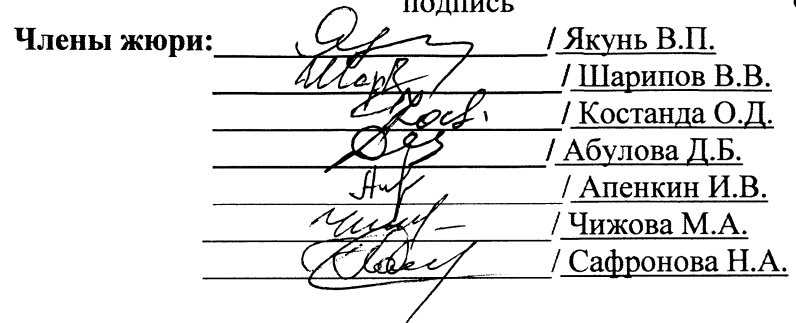 подпись
Члены жюри: / Якунь В.П.
/ Шарипов В.В.
/ Костанда О.Д.
/ Абулова Д.Б.
/ Апенкин И.В.
/ Чижова М.А.
/ Сафронова Н.А.